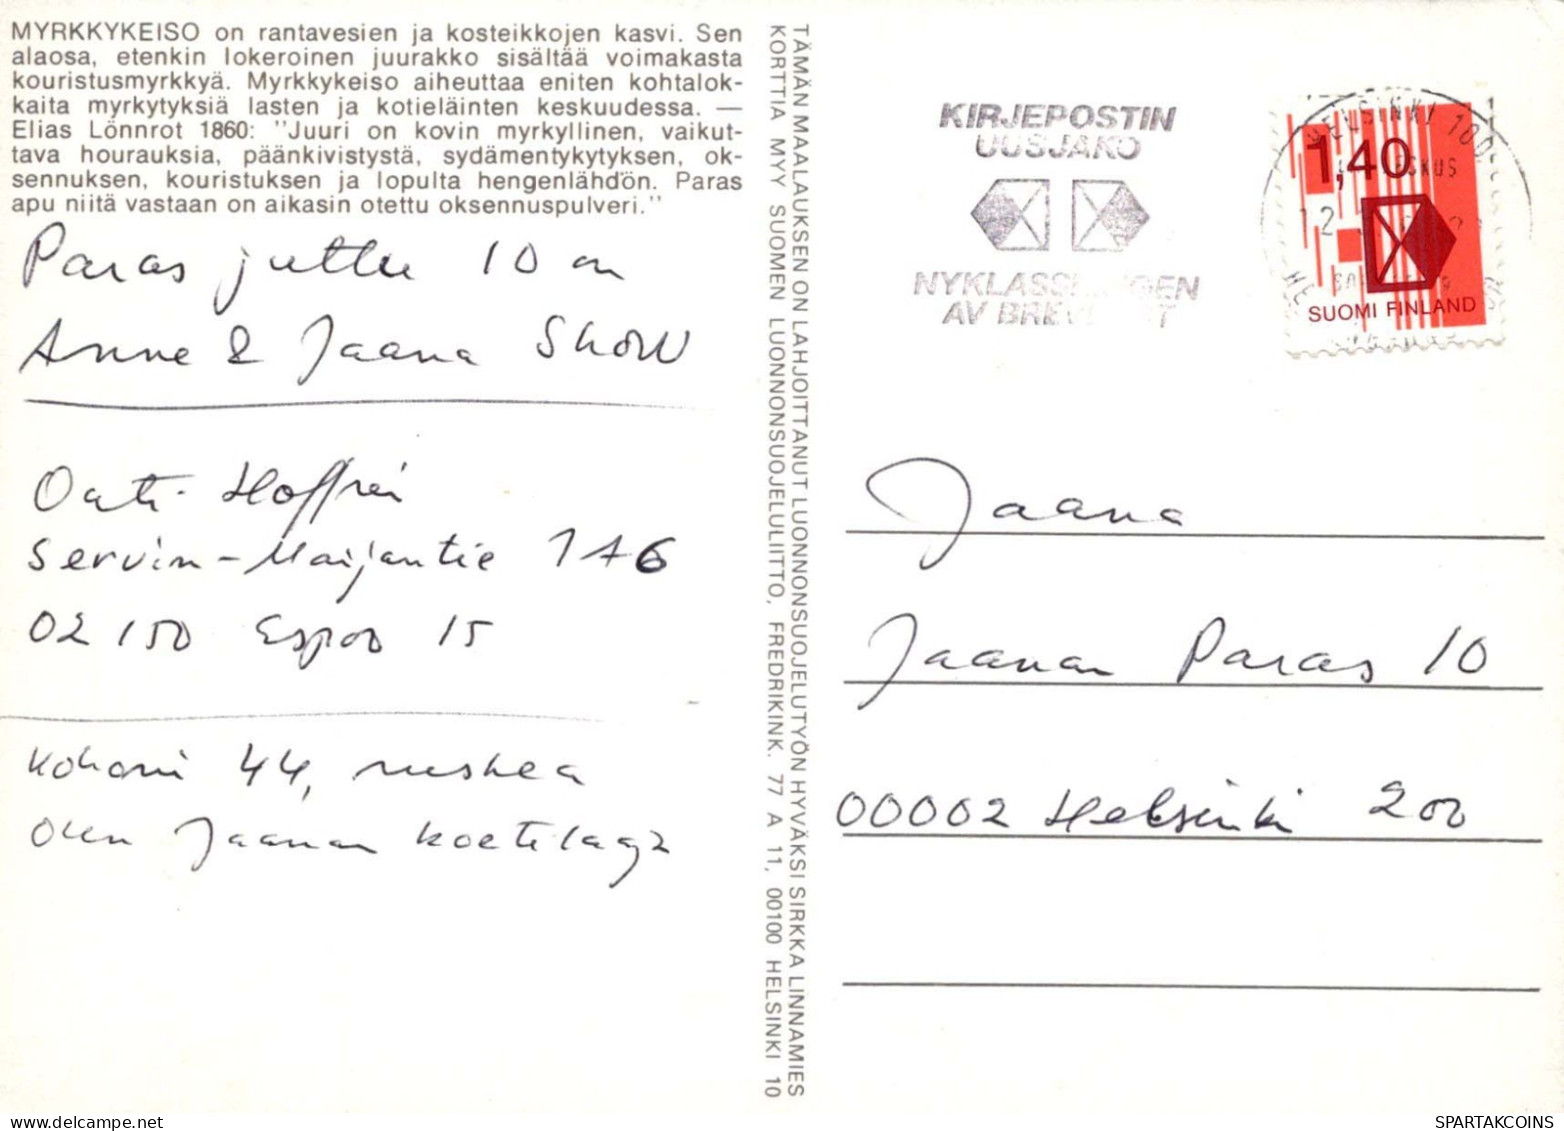 MYRKKYKEISO on rantavesien ja kosteikkojen kasvi. Sen
alaosa, etenkin lokeroinen juurakko sisältää voimakasta
kouristusmyrkkyä. Myrkkykeiso aiheuttaa eniten kohtalok-
kaita myrkytyksiä lasten ja kotieläinten keskuudessa. —
Elias Lönnrot 1860: "Juuri on kovin myrkyllinen, vaikut-
tava hourauksia, päänkivistystä, sydämentykytyksen, ok-
sennuksen, kouristuksen ja lopulta hengenlähdön. Paras
apu niitä vastaan on aikasin otettu oksennuspulveri."
Paras juttu 10 on
Anne & Jaana Show
Outi
Servin-Maijantie 1 A 6
02150 Espoo 15
44, ruskea
Olen Jaanan
TÄMÄN MAALAUKSEN ON LAHJOITTANUT LUONNONSUOJELUTYÖN HYVÄKSI SIRKKA LINNAMIES
KORTTIA MYY SUOMEN LUONNONSUOJELULIITTO, FREDRIKINK. 77 A 11, 00100 HELSINKI 10
KIRJEPOSTIN
UUSJAKO
NYKLASS GEN
AV BREV T
HELSINKI 100
12
1,40
SUOMI FINLAND
Jaana
Jaanan Paras 10
00002 Helsinki 200
SPARTAKCOINS